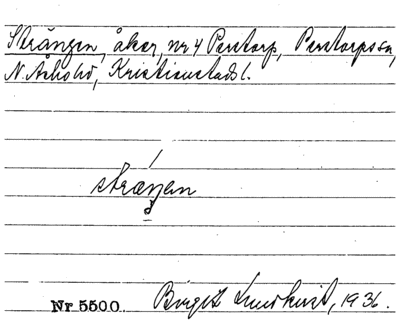 Strängen, åker, nr 4 Perstorp, Perstorps sn,
N. Åsbo hd, Kristianstads l.
stræŋen
Nr 5500 Birgit Lundkvist, 1936.